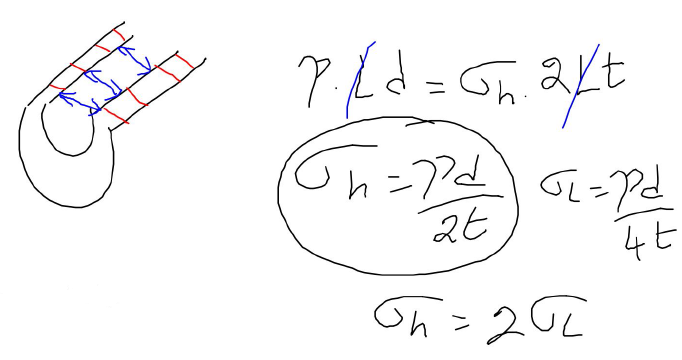 p.Ld = σh.2Lt
σh = pd/2t
σL = pd/4t
σh = 2σL